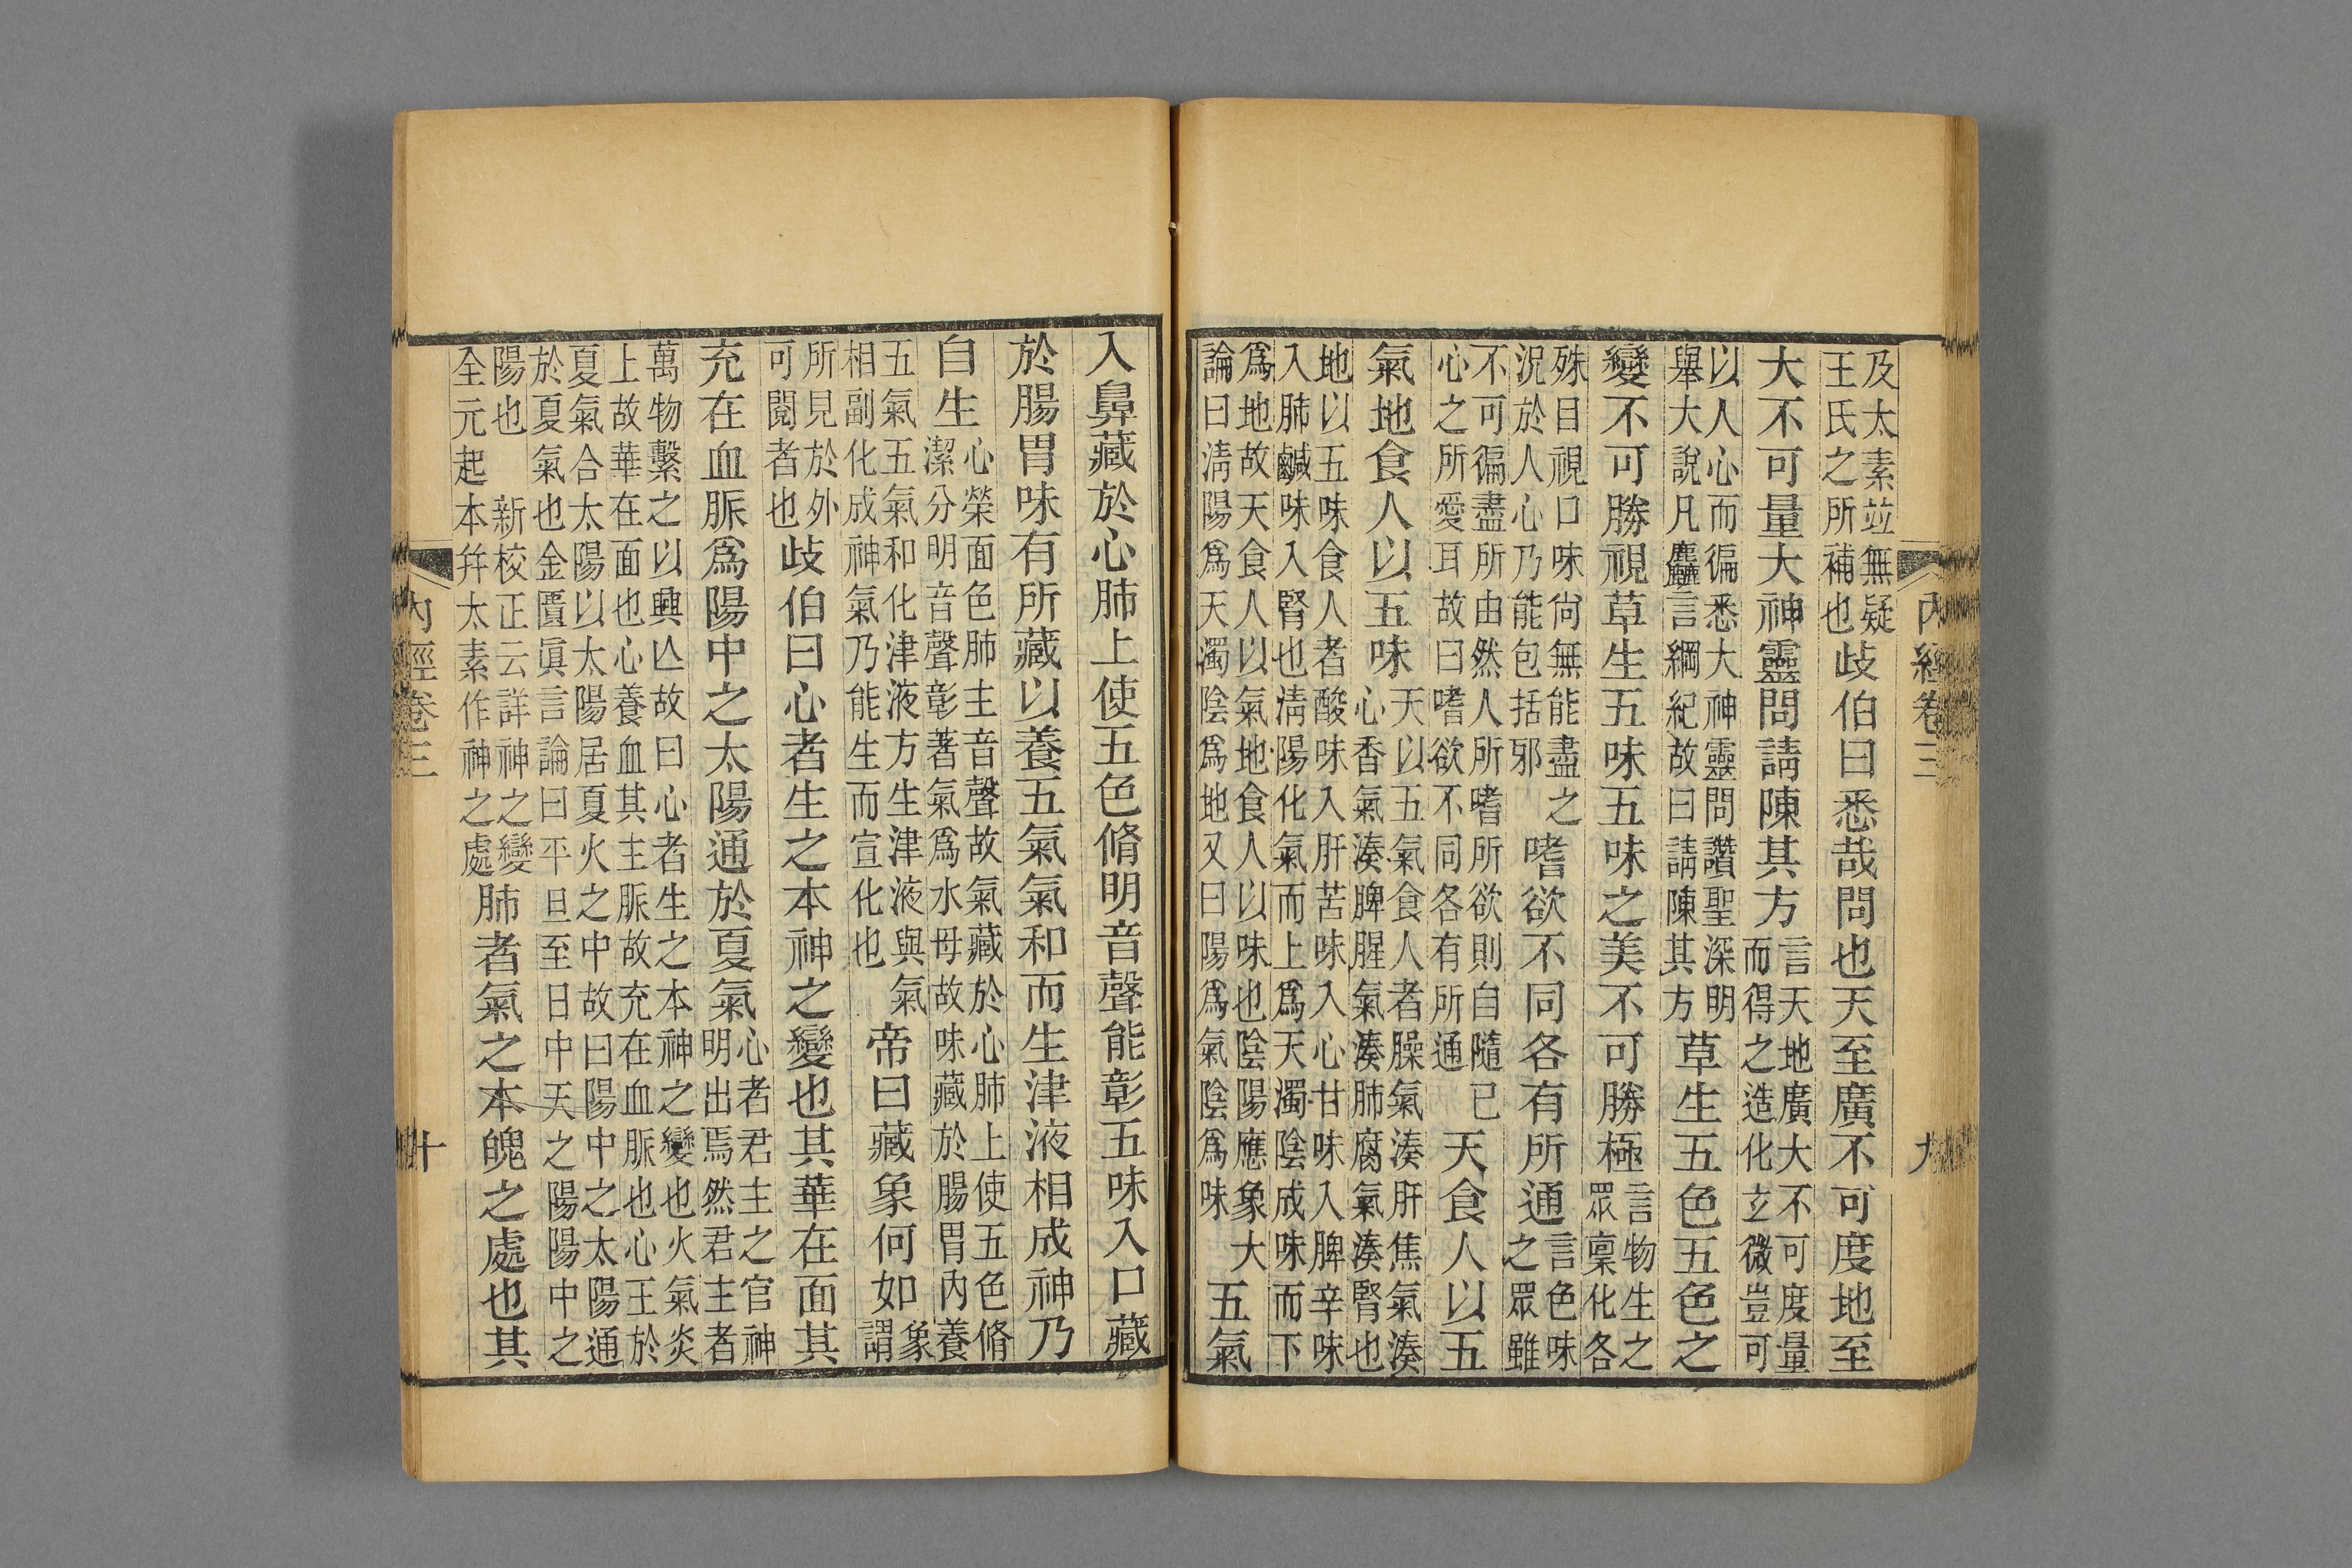 內經卷三 九
及太素竝無疑王氏之所補也岐伯曰悉哉問也天至廣不可度地至
大不可量大神靈問請陳其方言天地廣大不可度量而得之造化玄微豈可
以人心而徧悉大神靈問讚聖深明舉大說凡麤言綱紀故曰請陳其方草生五色五色之
變不可勝視草生五味五味之美不可勝極言物生之眾稟化各
殊目視口味尙無能盡之況於人心乃能包括邪嗜欲不同各有所通言色味之眾雖
不可徧盡所由然人所嗜所欲則自隨己心之所愛耳故曰嗜欲不同各有所通天食人以五
氣地食人以五味天以五氣食人者臊氣湊肝焦氣湊心香氣湊脾腥氣湊肺腐氣湊腎也
地以五味食人者酸味入肝苦味入心甘味入脾辛味入肺鹹味入腎也淸陽化氣而上爲天濁陰成味而下
爲地故天食人以氣地食人以味也陰陽應象大論曰淸陽爲天濁陰爲地又曰陽爲氣陰爲味五氣
入鼻藏於心肺上使五色脩明音聲能彰五味入口藏
於腸胃味有所藏以養五氣氣和而生津液相成神乃
自生心榮面色肺主音聲故氣藏於心肺上使五色脩潔分明音聲彰著氣爲水母故味藏於腸胃內養
五氣五氣和化津液方生津液與氣相副化成神氣乃能生而宣化也帝曰藏象何如象謂
所見於外可閱者也岐伯曰心者生之本神之變也其華在面其
充在血脈爲陽中之太陽通於夏氣心者君主之官神明出焉然君主者
萬物繫之以興亾故曰心者生之本神之變也火氣炎上故華在面也心養血其主脈故充在血脈也心王於
夏氣合太陽以太陽居夏火之中故曰陽中之太陽通於夏氣也金匱眞言論曰平旦至日中天之陽陽中之
陽也 新校正云詳神之變全元起本幷太素作神之處肺者氣之本魄之處也其
內經卷三 十